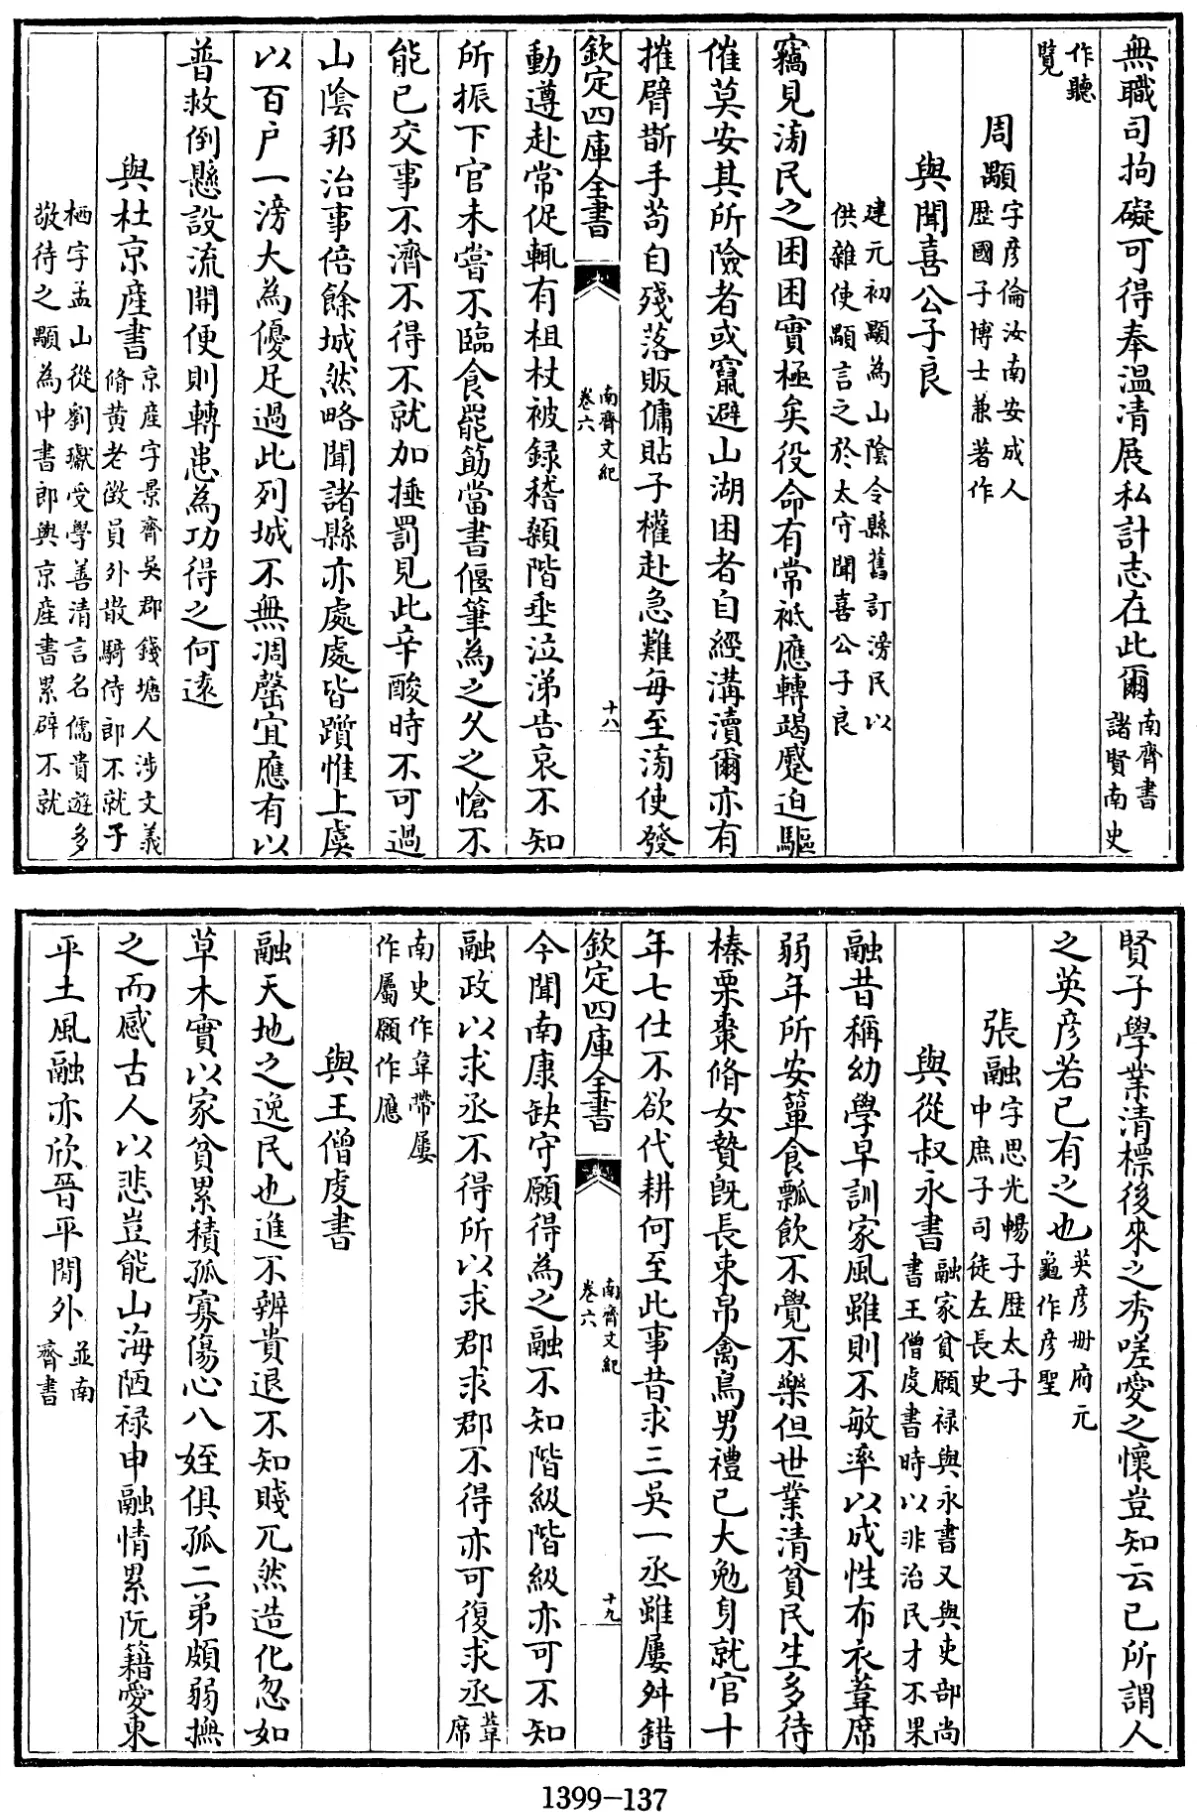 無職司拘礙可得奉温清展私計志在此爾南齊書諸賢南史
作聽覽
周顒字彦倫汝南安成人歴國子博士兼著作
與聞喜公子良
建元初顒為山陰令縣舊訂滂民以供雜使顒言之於太守聞喜公子良
竊見滂民之困困實極矣役命有常祗應轉竭蹙迫驅
催莫安其所險者或竄避山湖困者自經溝瀆爾亦有
摧臂斮手茍自殘落販傭貼子權赴急難毎至滂使發
欽定四庫全書 南齊文紀卷六 十八
動遵赴常促輒有柤杖被録稽顙階垂泣涕告哀不知
所振下官未嘗不臨食罷筯當書偃筆為之久之愴不
能已交事不濟不得不就加捶罰見此辛酸時不可過
山陰邦治事倍餘城然略聞諸縣亦處處皆躓惟上虞
以百户一滂大為優足過此列城不無凋罄宜應有以
普救倒懸設流開便則轉患為功得之何逺
與杜京産書京産字景齊吳郡錢塘人涉文義脩黄老徴員外散騎侍郎不就子
栖字孟山從劉瓛受學善清言名儒貴遊多敬待之顒為中書郎與京産書累辟不就
賢子學業清標後來之秀嗟愛之懷豈知云已所謂人
之英彦若已有之也英彦册府元龜作彦聖
張融字思光暢子歴太子中庶子司徒左長史
與從叔永書融家貧願禄與永書又與吏部尚書王僧䖍書時以非治民才不果
融昔稱幼學早訓家風雖則不敏率以成性布衣葦席
弱年所安簞食瓢飲不覺不樂但世業清貧民生多待
榛栗棗脩女贄旣長束帛禽鳥男禮已大勉身就官十
年七仕不欲代耕何至此事昔求三吳一丞雖屢舛錯
欽定四庫全書 南齊文紀卷六 十九
今聞南康缺守願得為之融不知階級階級亦可不知
融政以求丞不得所以求郡求郡不得亦可復求丞葦席
南史作韋帶屢作屬願作應
與王僧䖍書
融天地之逸民也進不辨貴退不知賤兀然造化忽如
草木實以家貧累積孤寡傷心八姪俱孤二弟頗弱撫
之而感古人以悲豈能山海陋禄申融情累阮籍愛東
平土風融亦欣晉平閒外並南齊書
1399-137